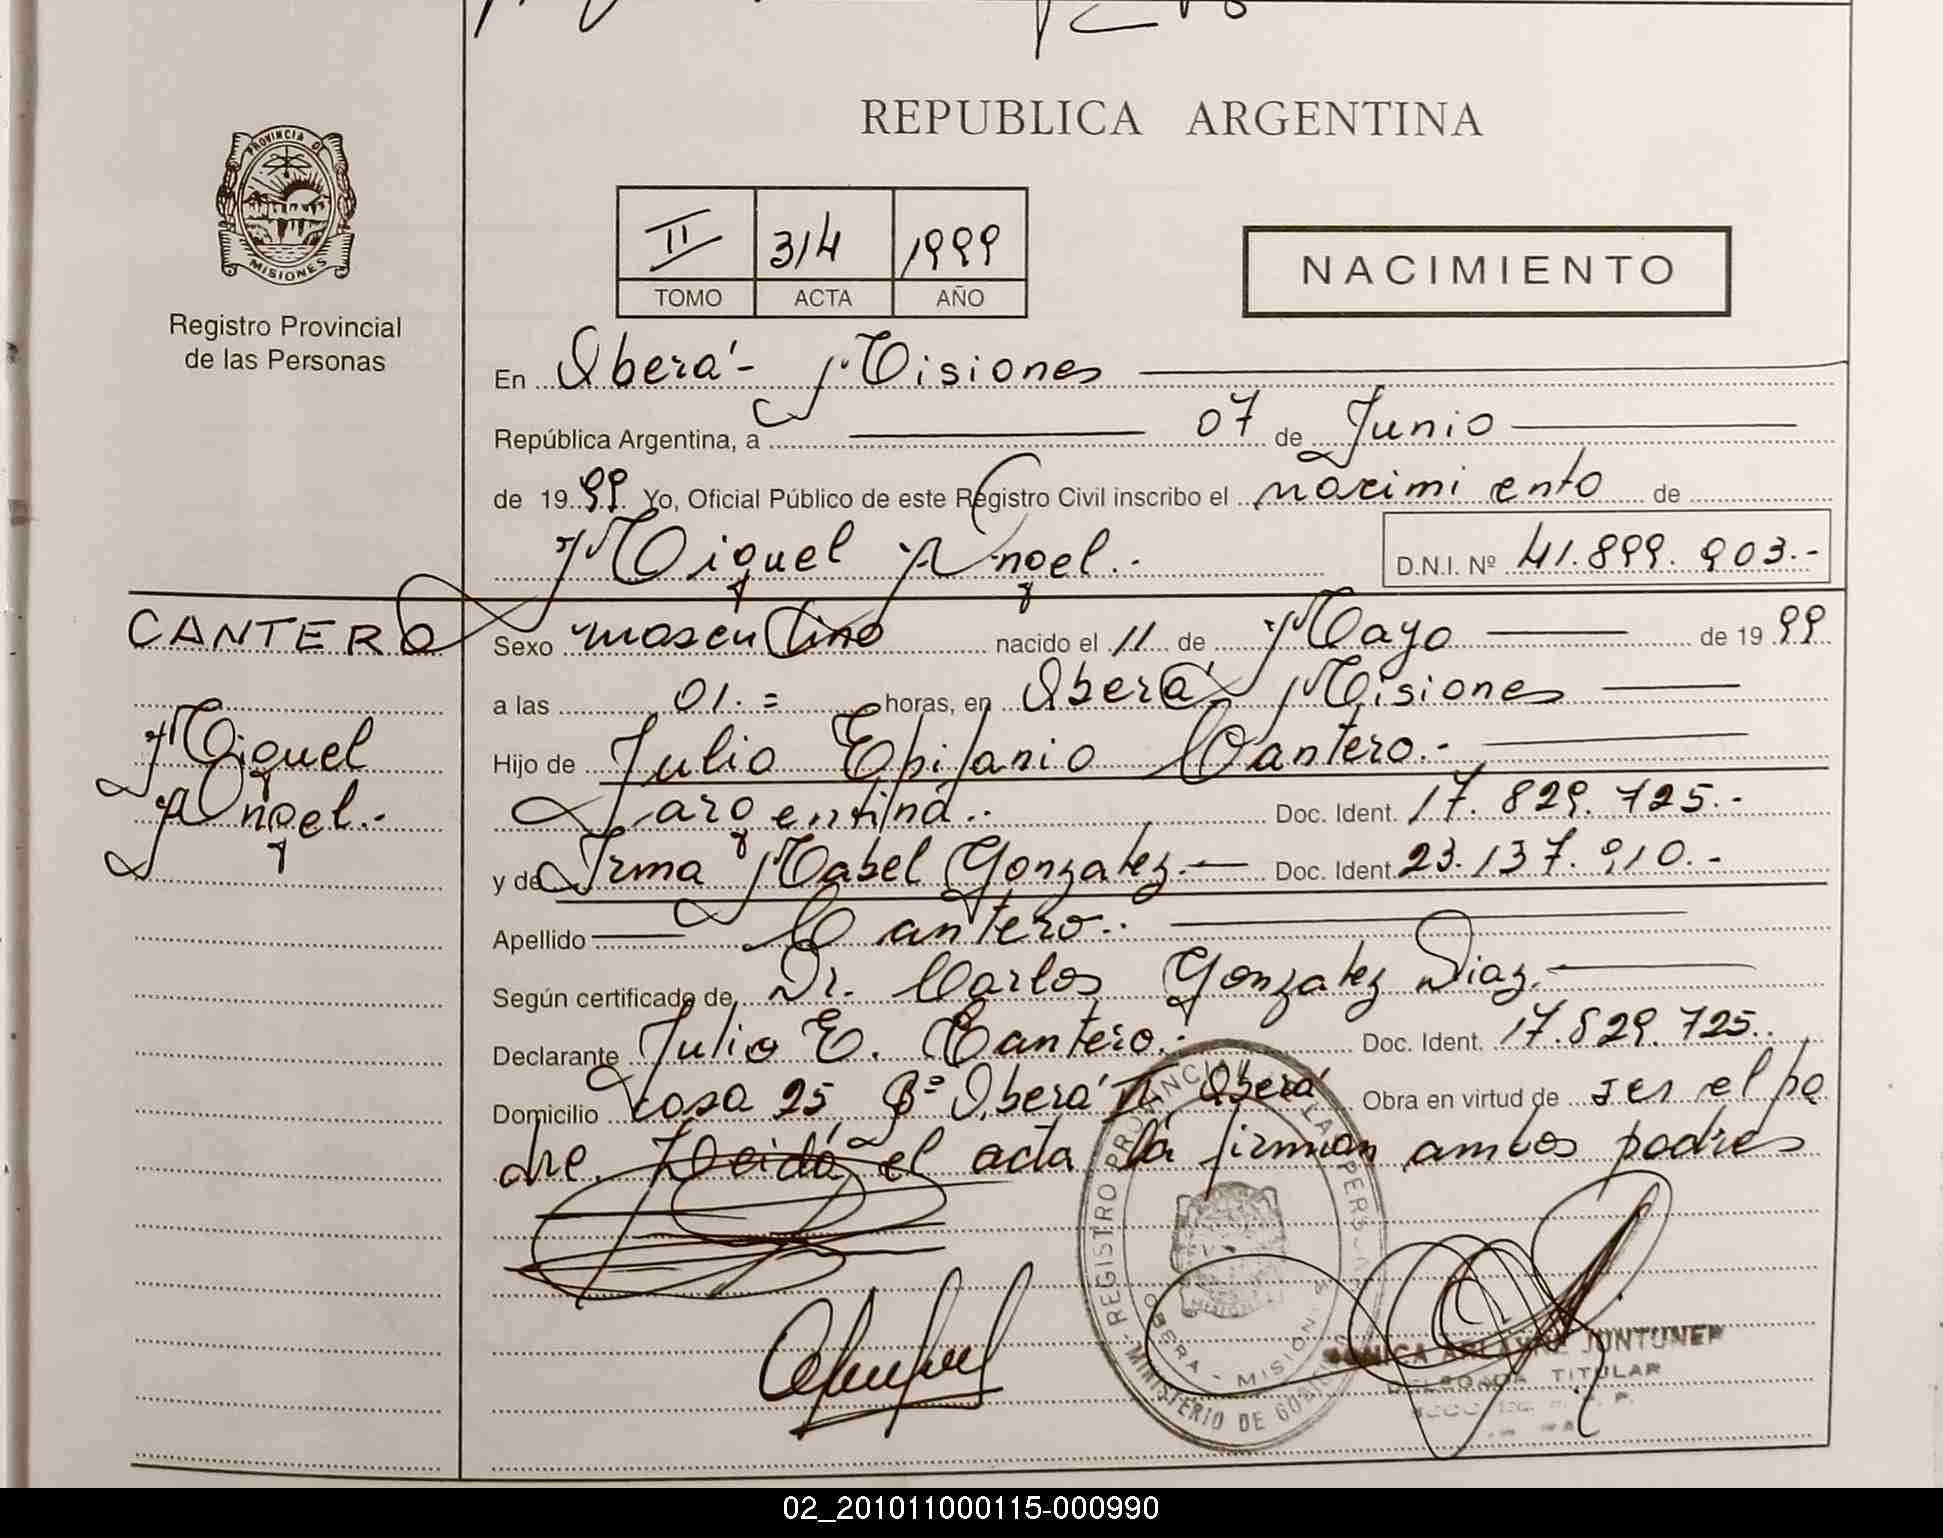 REPUBLICA ARGENTINA
PROVINCIA DE
MISIONES
Registro Provincial
de las Personas
II 314 1999
TOMO ACTA AÑO
NACIMIENTO
En Oberá - Misiones
República Argentina, a 07 de Junio
de 1999 Yo, Oficial Público de este Registro Civil inscribo el nacimiento de
Miguel Angel.- D.N.I. Nº 41.899.903.-
CANTERO
Miguel
Angel.-
Sexo masculino nacido el 11 de Mayo de 1999
a las 01.= horas, en Oberá Misiones
Hijo de Julio Epifanio Cantero.-
argentina.. Doc. Ident. 17.829.725.-
y de Irma Mabel Gonzalez.- Doc. Ident. 23.137.910.-
Apellido Cantero.-
Según certificado de Dr. Carlos Gonzalez Diaz.
Declarante Julio E. Cantero.- Doc. Ident. 17.829.725..
Domicilio casa 25 Bº Oberá II Oberá Obra en virtud de ser el pa
dre. Leida el acta la firman ambos padres
REGISTRO PROVINCIAL LAS PERS
OBERA - MISIONES
MINISTERIO DE GOBIE
MISIONES
JUNTUNEN
DELEGADA TITULAR
02_201011000115-000990